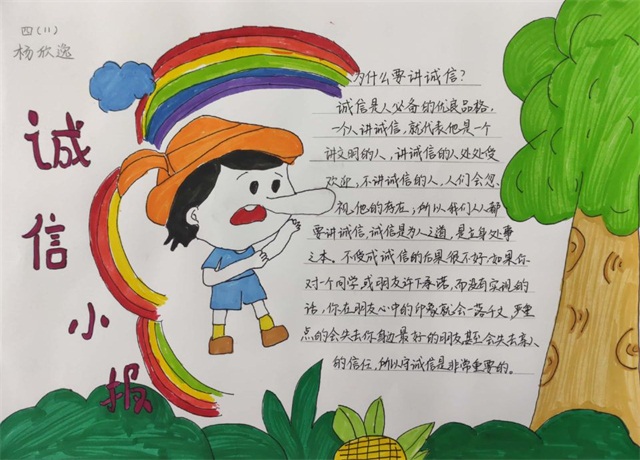 四(11)
杨欣逸
诚信小报
为什么要讲诚信?
诚信是人必备的优良品格,
一个人讲诚信,就代表他是一个
讲文明的人,讲诚信的人处处受
欢迎,不讲诚信的人,人们会忽
视他的存在;所以我们人人都
要讲诚信,诚信是为人之道,是立身处事
之本。不
诚信的后果很不好,如果你
对一个同学或朋友许下承诺,而没有实现的
话,你在朋友心中的印象就会一落千丈,严重
点的会失去你身边最好的朋友甚至会失去亲人
的信任,所以守诚信是非常重要的。